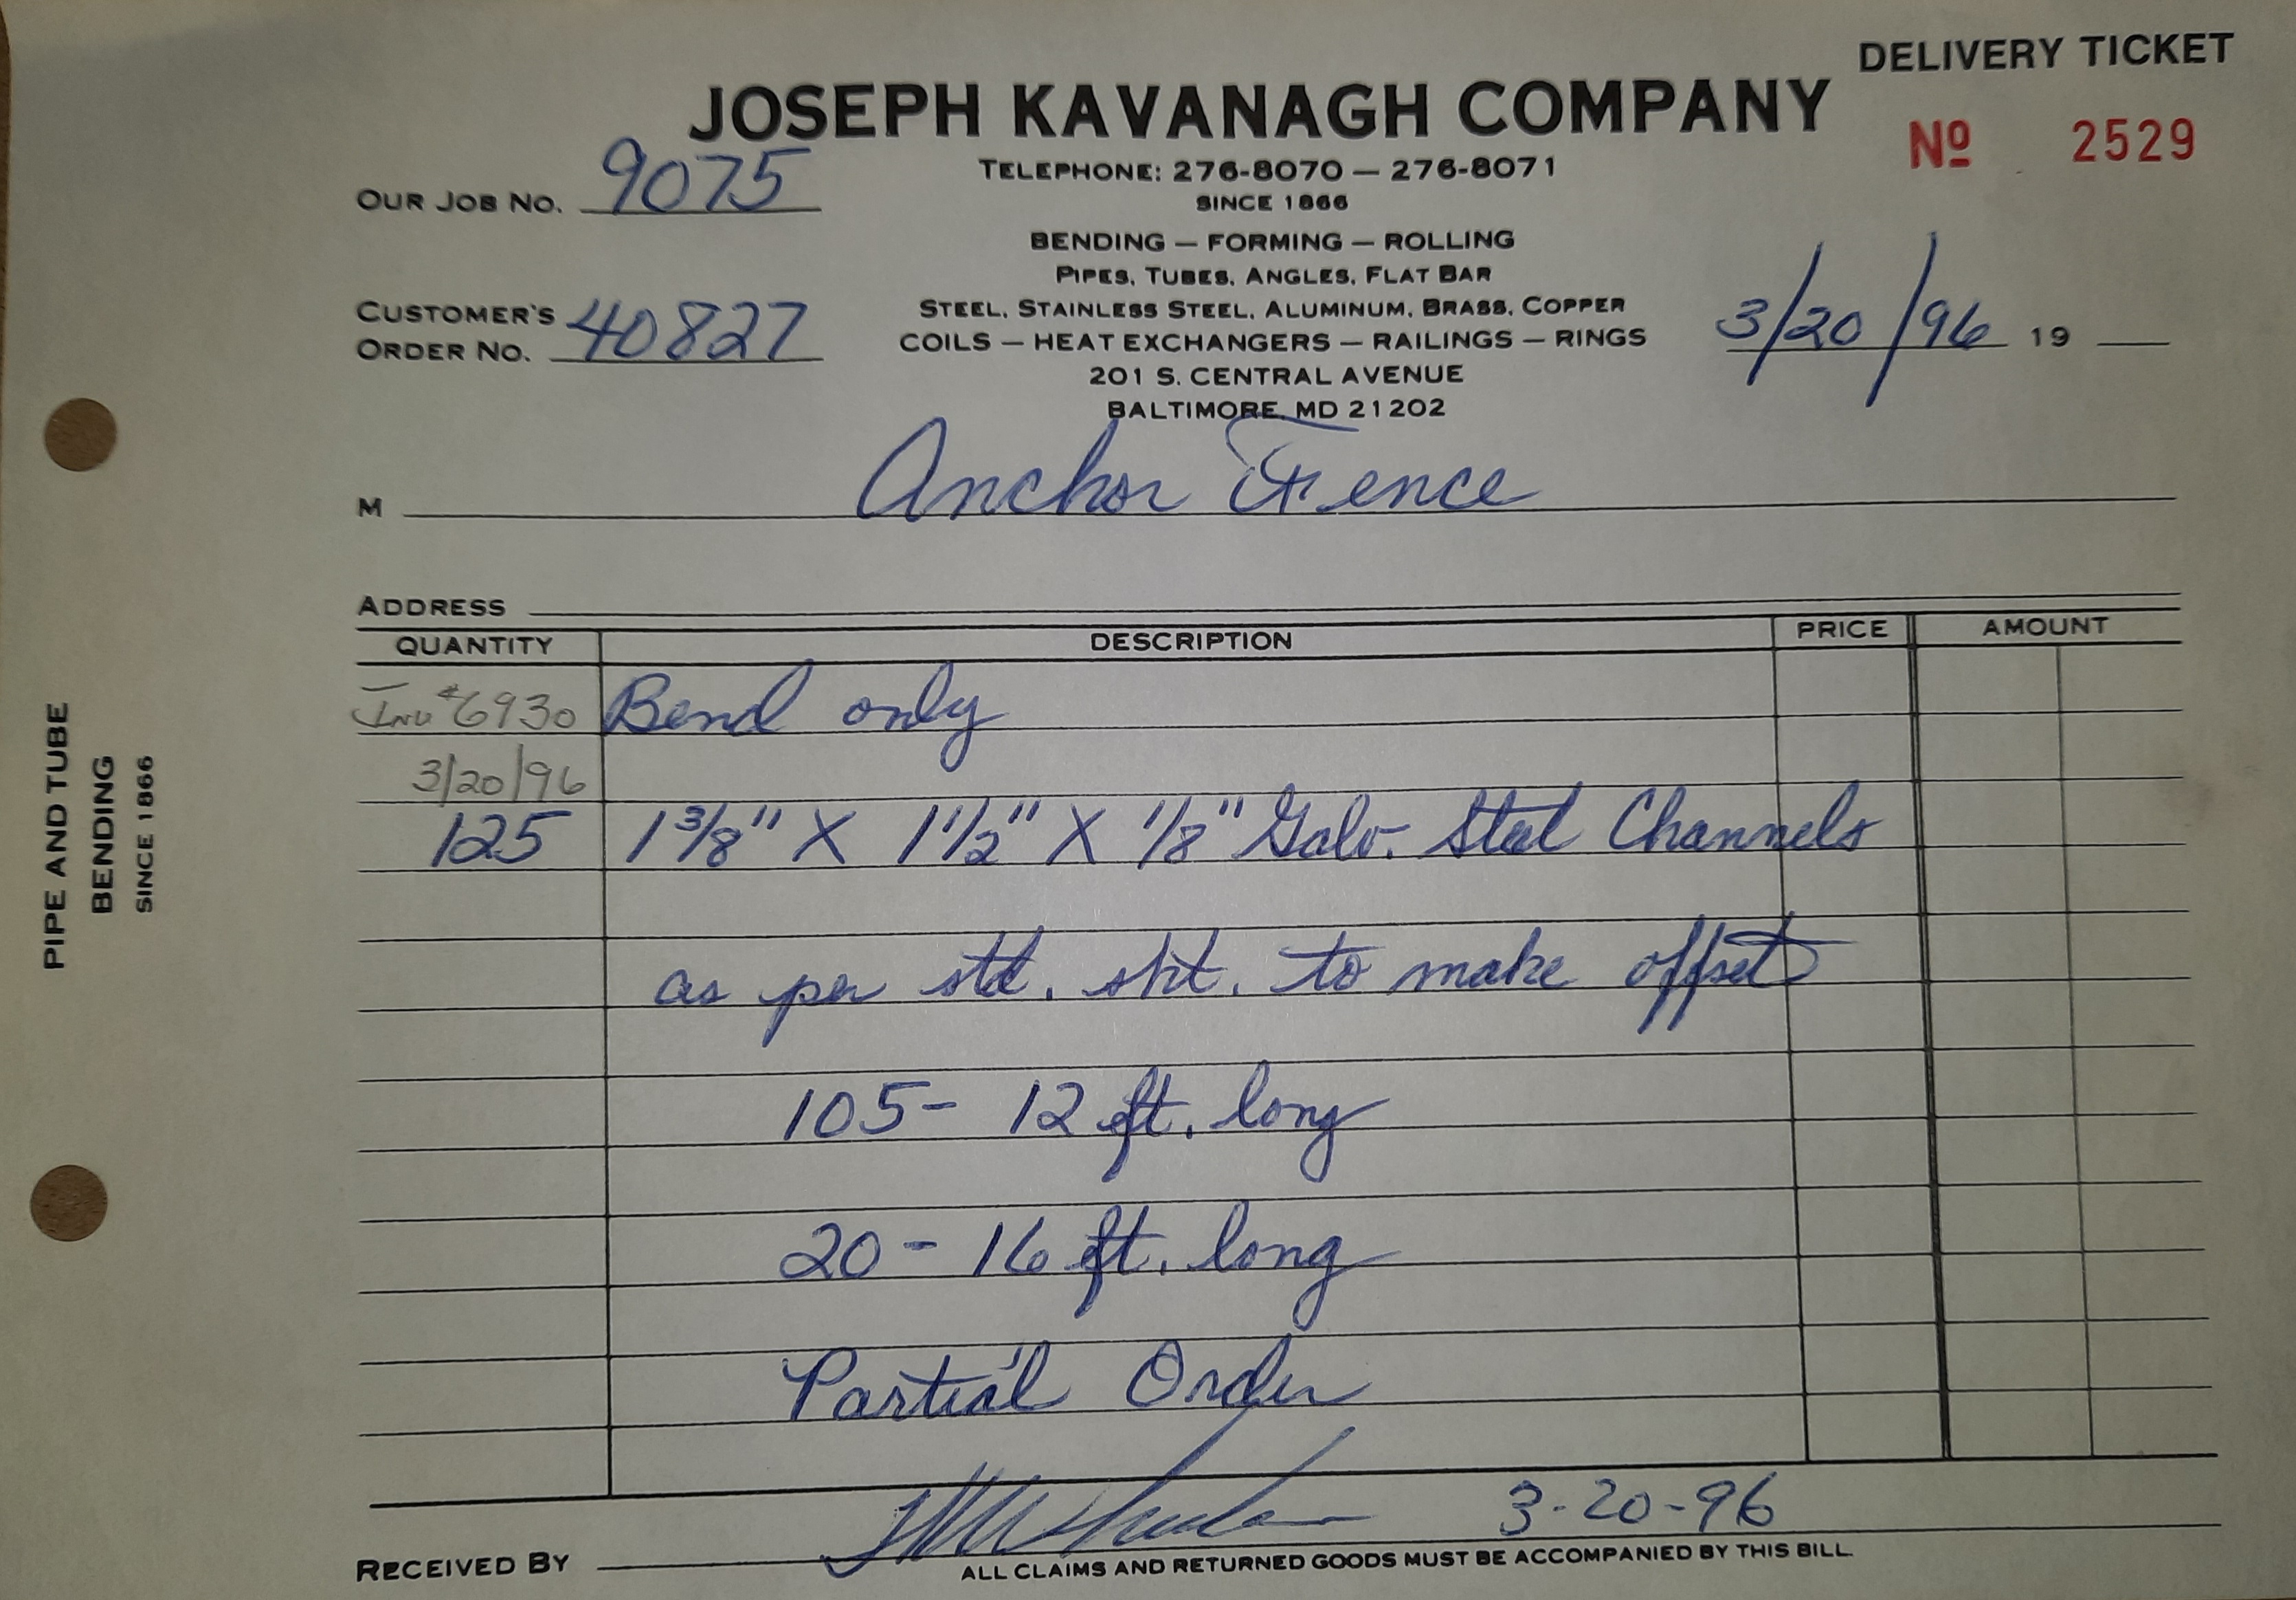 DELIVERY TICKET
JOSEPH KAVANAGH COMPANY
Nº 2529
TELEPHONE: 276-8070 — 276-8071
OUR JOB NO. 9075
SINCE 1866
BENDING — FORMING — ROLLING
PIPES, TUBES, ANGLES, FLAT BAR
STEEL, STAINLESS STEEL, ALUMINUM, BRASS, COPPER
CUSTOMER'S
ORDER NO. 40827
COILS — HEAT EXCHANGERS — RAILINGS — RINGS
3/20/96 19
201 S. CENTRAL AVENUE
BALTIMORE, MD 21202
M Anchor Fence
ADDRESS
QUANTITY DESCRIPTION PRICE AMOUNT
Inv #6930 Bend only
3/20/96
125 1 3/8" X 1 1/2" X 1/8" Galv. Steel Channels
as per std. sht. to make offset
105- 12 ft. long
20 - 16 ft. long
Partial Order
3-20-96
RECEIVED BY
ALL CLAIMS AND RETURNED GOODS MUST BE ACCOMPANIED BY THIS BILL.
PIPE AND TUBE
BENDING
SINCE 1866